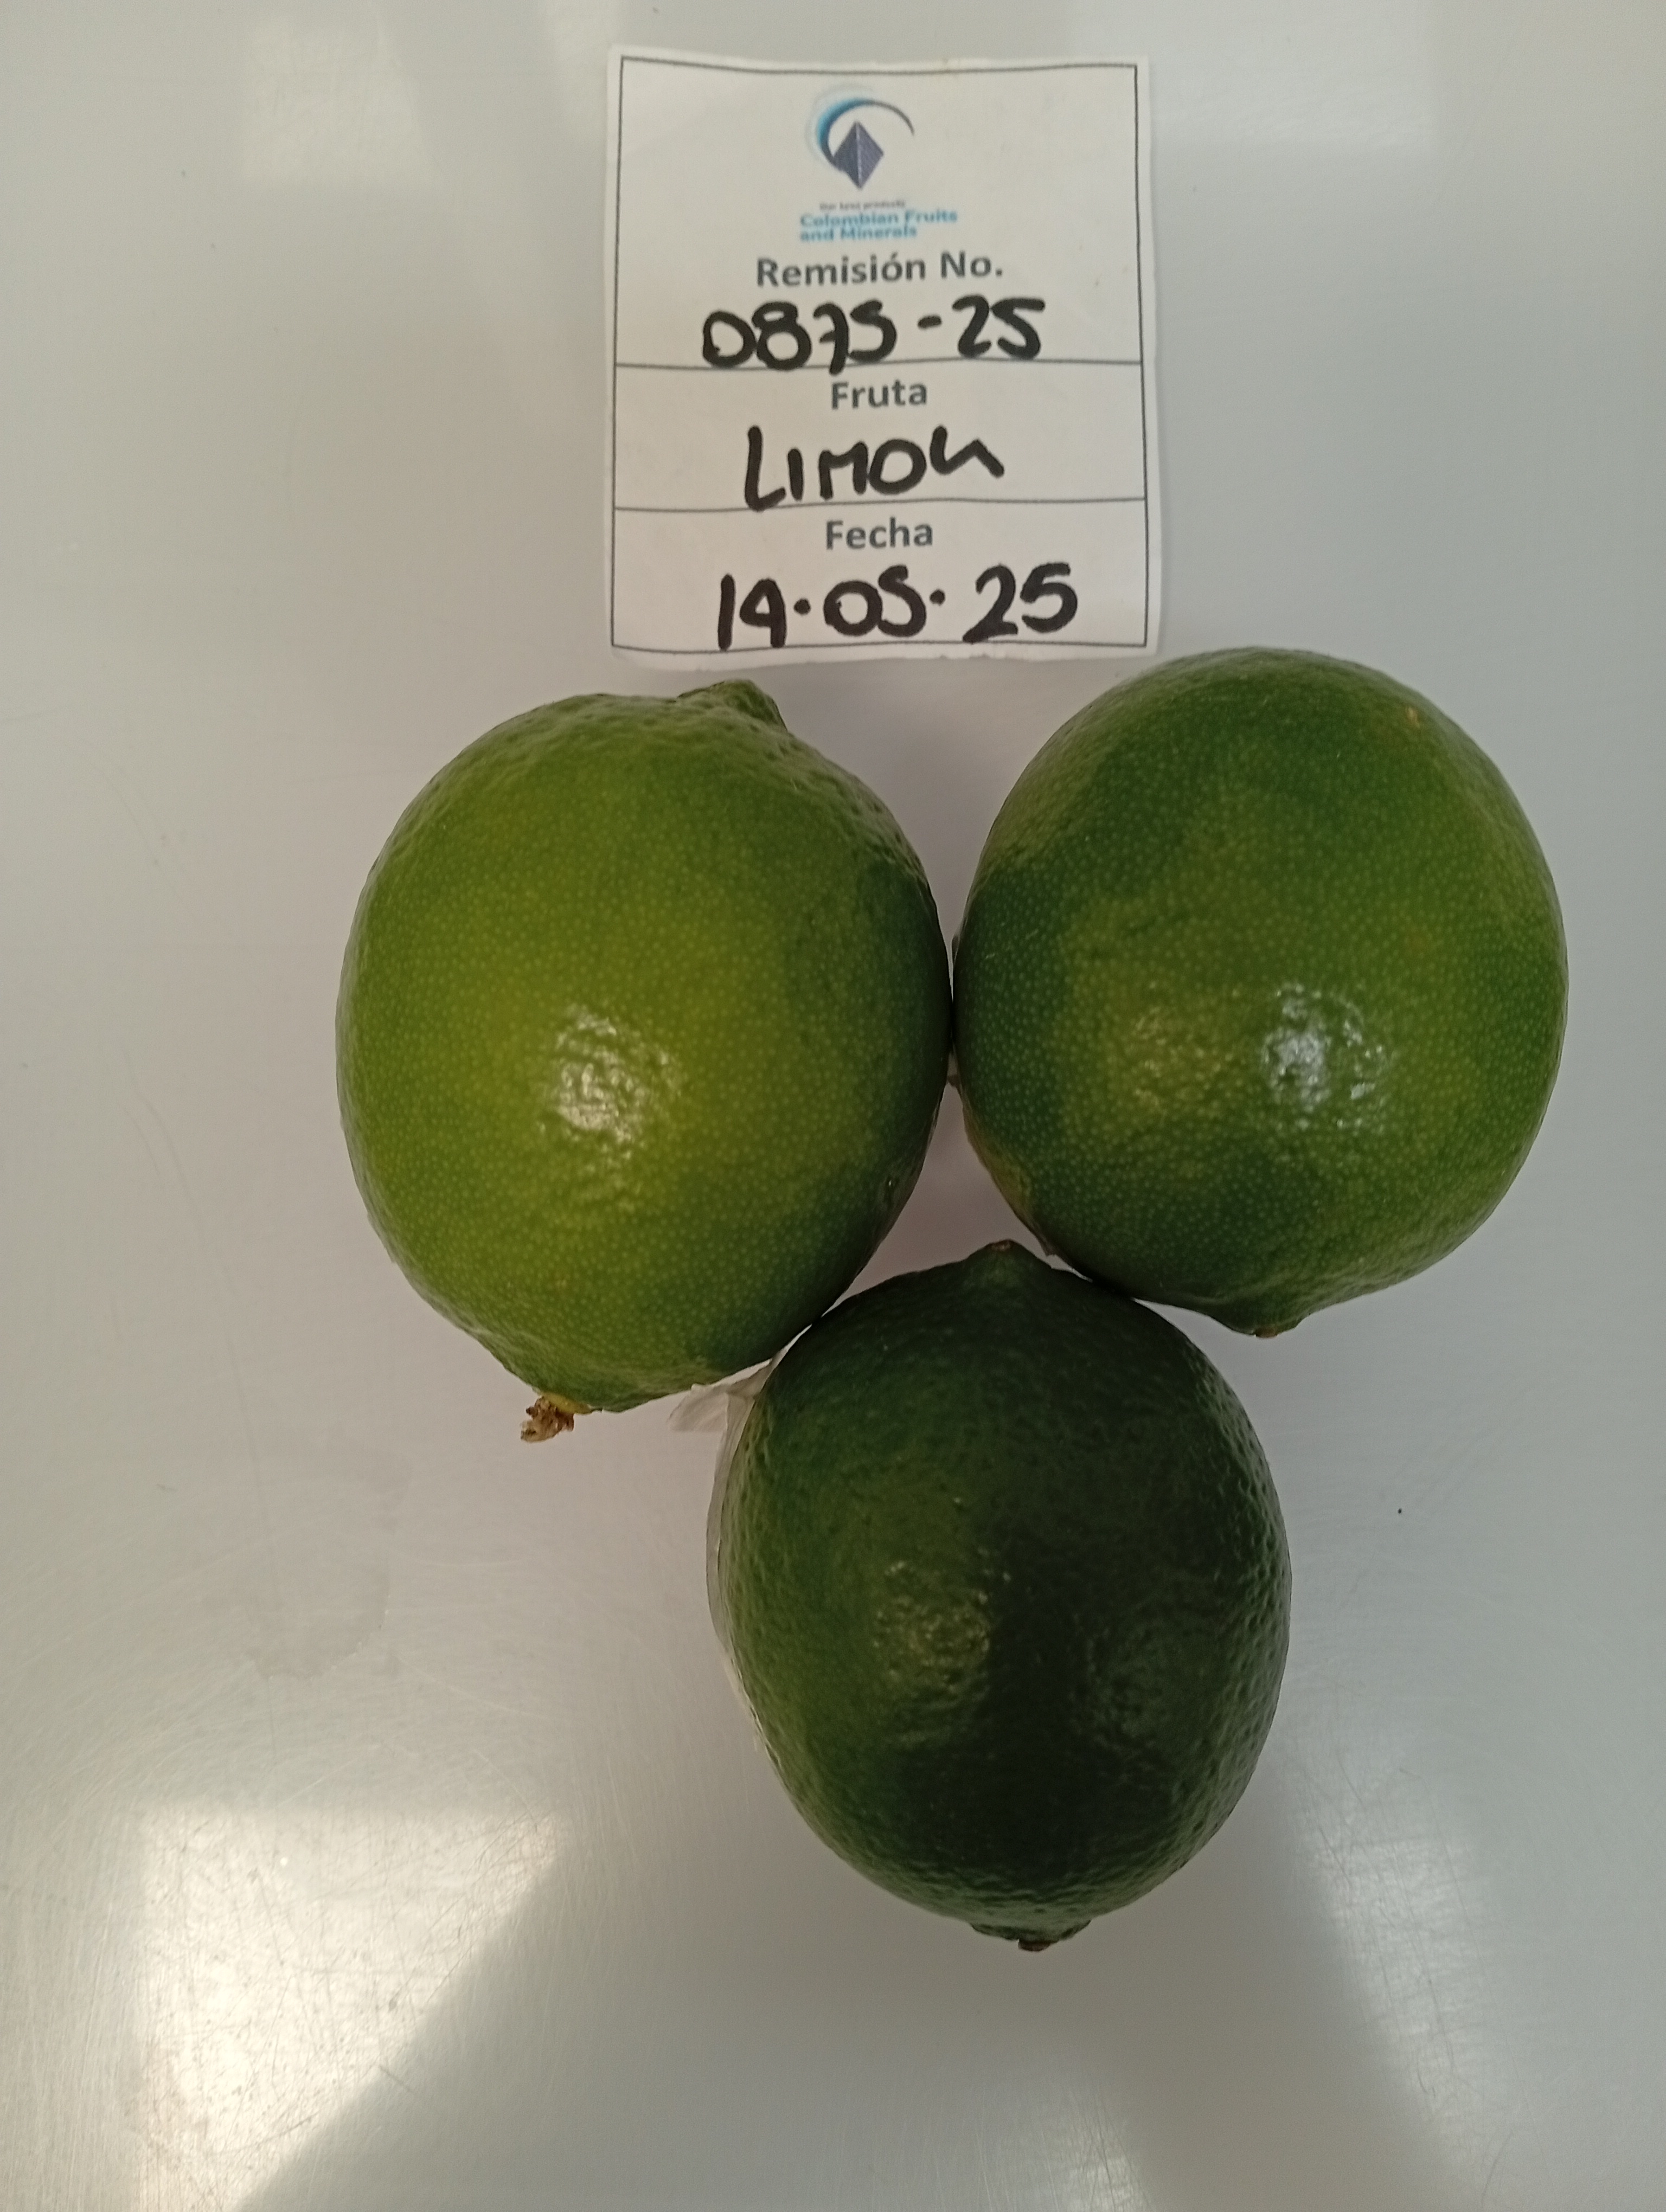 Our best products
Colombian Fruits
and Minerals
Remisión No.
0875-25
Fruta
LIMON
Fecha
14.05.25